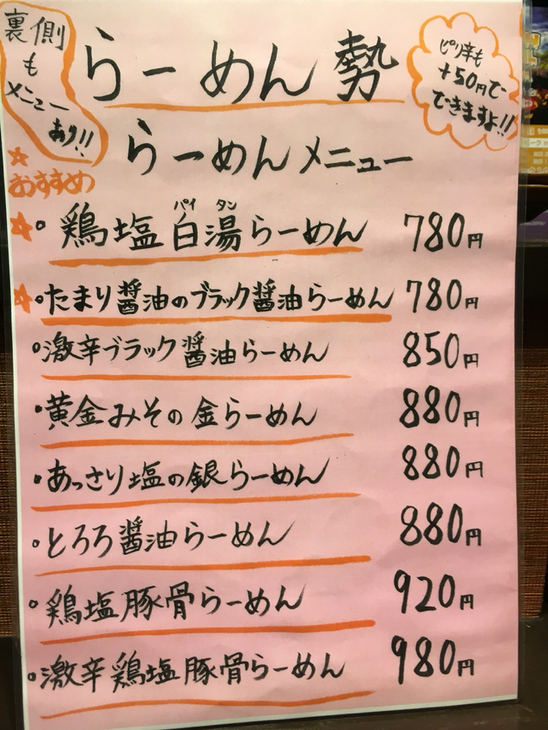 裏側
も
メニュー
あり!!
らーめん 勢
ピリ辛も
+50円で
できますよ!!
らーめんメニュー
☆
おすすめ
☆• 鶏塩白湯らーめん 780円
パイ タン
☆•たまり醤油のブラック醤油らーめん 780円
•激辛ブラック醤油らーめん 850円
•黄金みその金らーめん 880円
•あっさり塩の銀らーめん 880円
•とろろ醤油らーめん 880円
•鶏塩豚骨らーめん 920円
•激辛鶏塩豚骨らーめん 980円